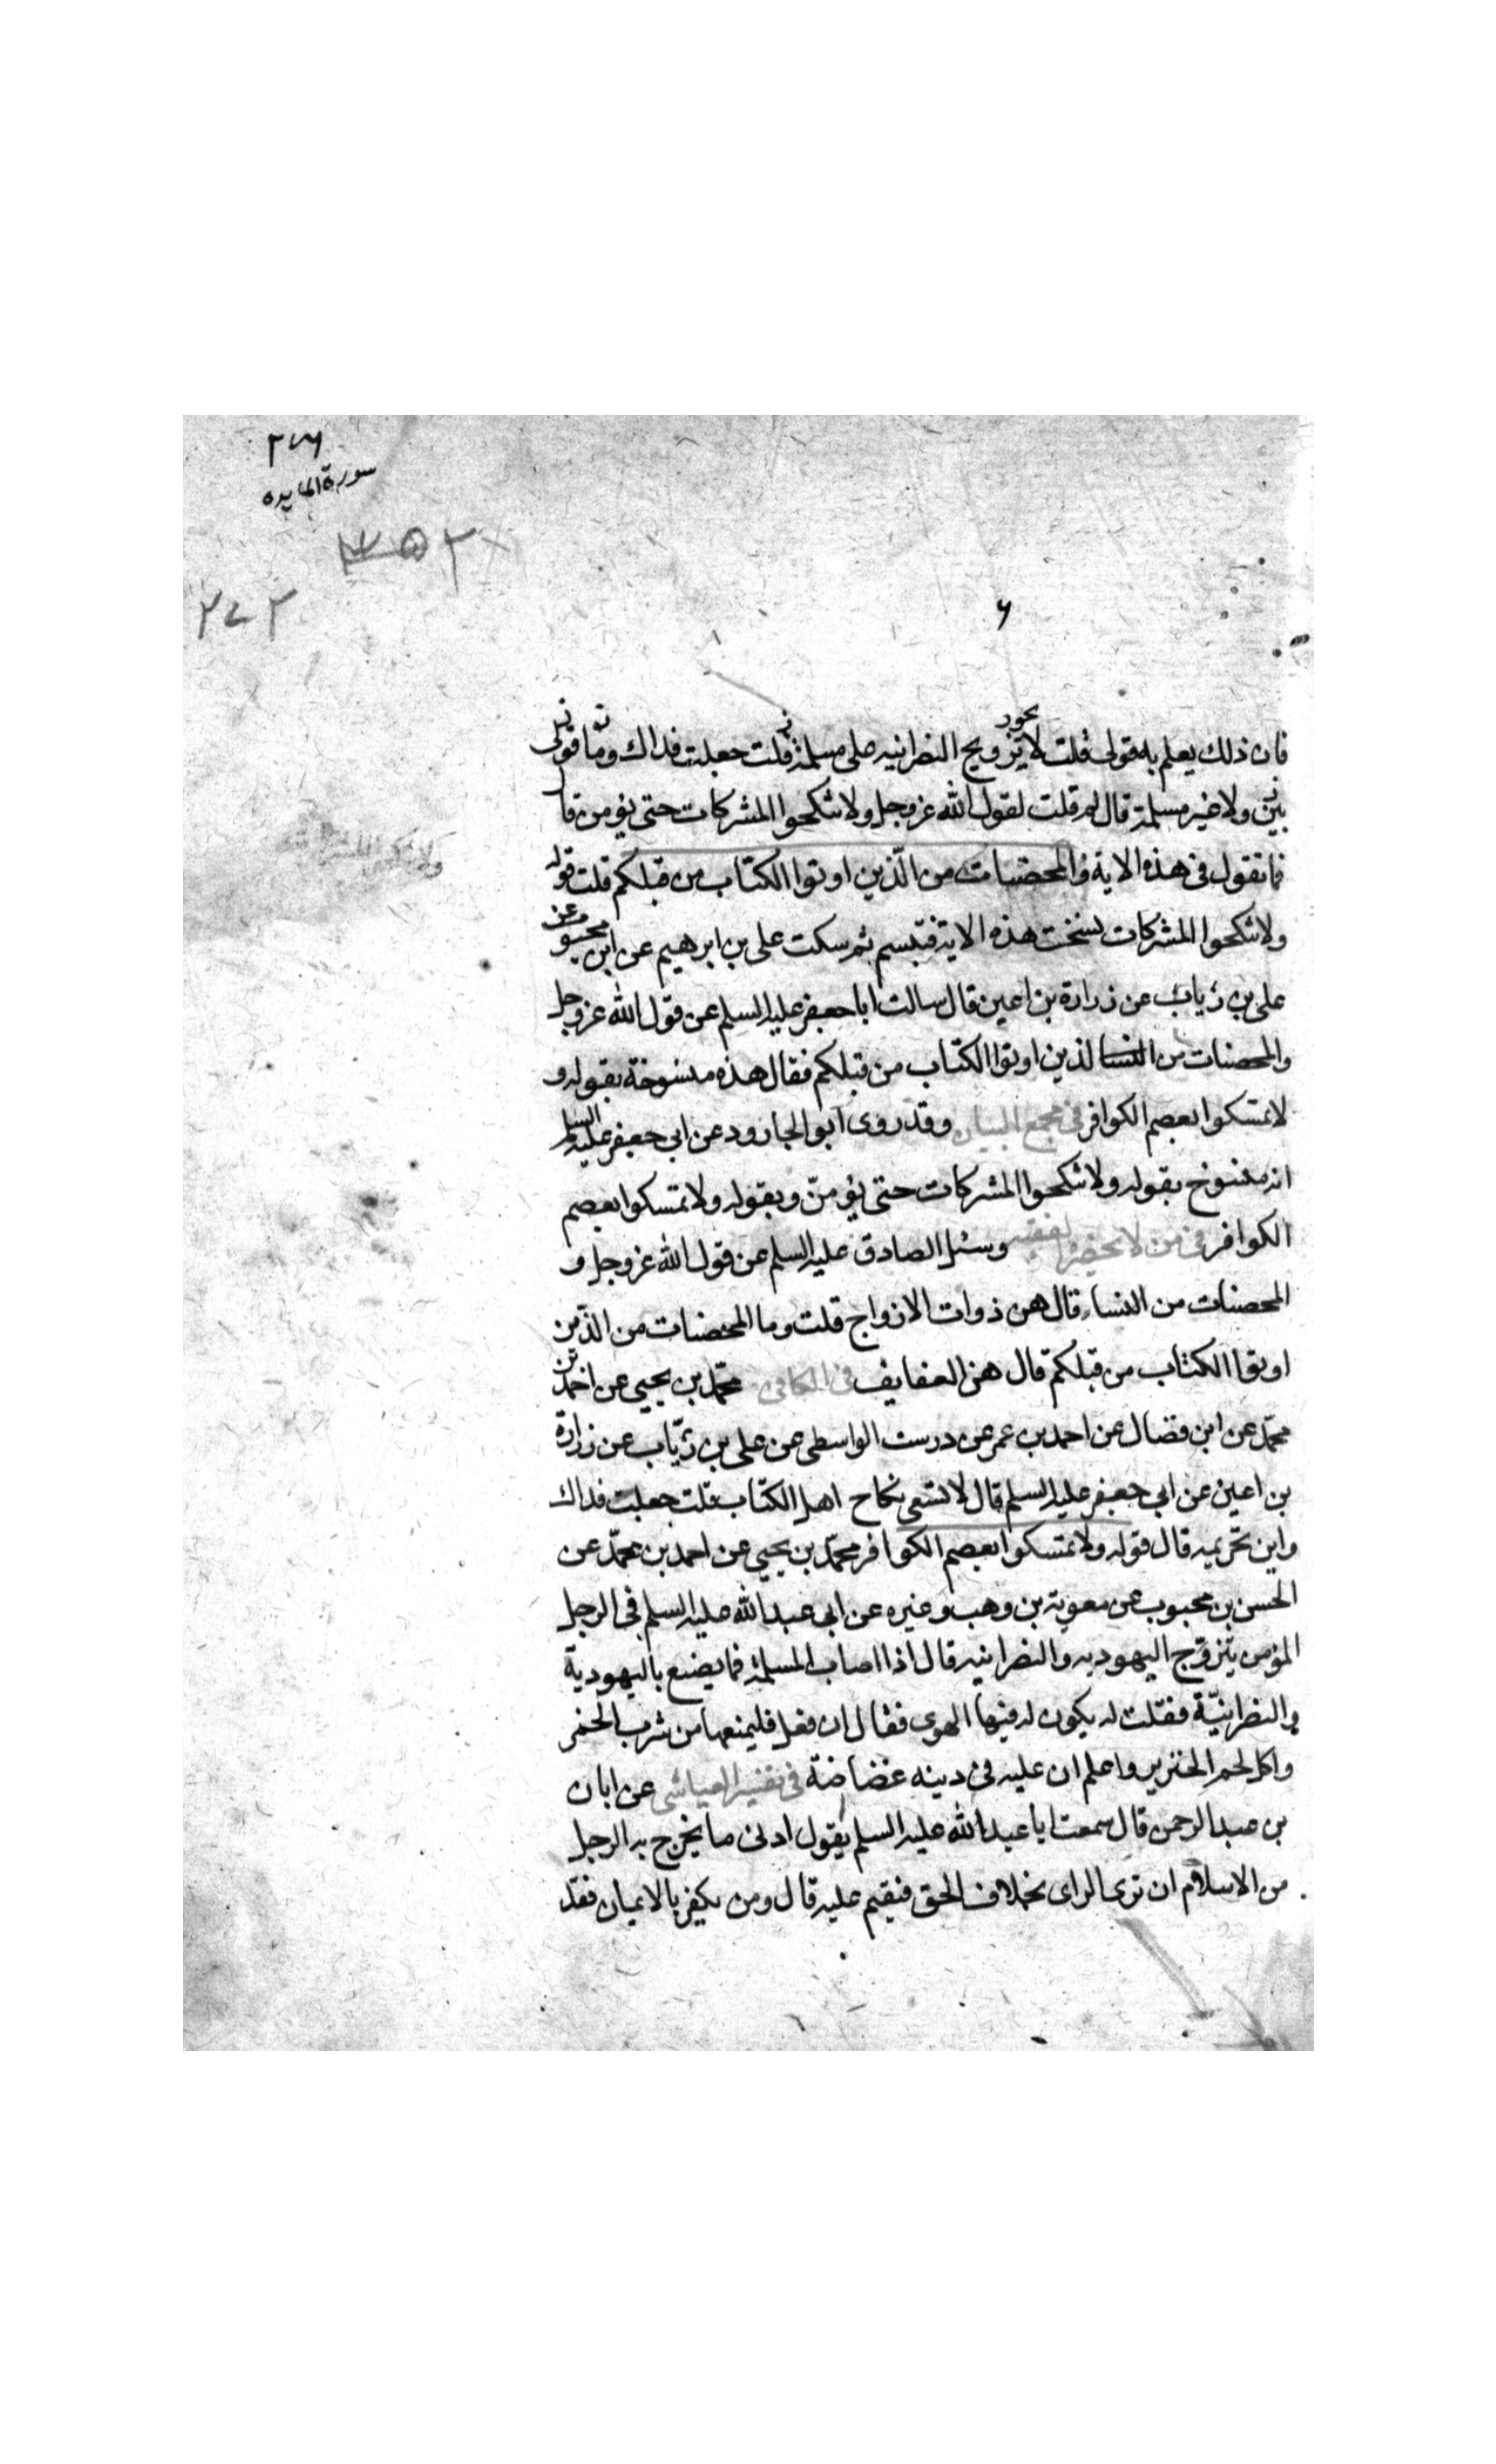 ٢٧٦
سورة المايده
٢٥٣
٢٧٢
۶
يجوز
فان ذلك يعلم به قولى قلت لا تزويج النصرانيه على مسلمة قلت جعلت فداك وما قولى
بين ولا غير مسلمة قال لم قلت لقول الله عز وجل ولا تنكحوا المشركات حتى يؤمن قا
فما تقول فى هذه الاية والمحصنات من الّذين اوتوا الكتاب من قبلكم قلت قوله
ولا تنكحوا المشركات نسخت هذه الاية فتبسم ثم سكت على بن ابرهيم عن ابن محبوب عن
على بن رئاب عن زرارة بن اعين قال سالت ابا جعفر عليه السلم عن قول الله عز وجل
والمحصنات من الذين اوتوا الكتاب من قبلكم فقال هذه منسوخة بقوله و
لا تمسكوا بعصم الكوافر فى مجمع البيان وقد روى ابو الجارود عن ابى جعفر عليه السلم
انه منسوخ بقوله ولا تنكحوا المشركات حتى يؤمنّ وبقوله ولا تمسكوا بعصم
الكوافر فى من لا يحضره الفقيه وسئل الصادق عليه السلم عن قول الله عز وجل و
المحصنات من النساء قال هن ذوات الازواج قلت وما المحصنات من الذّين
اوتوا الكتاب من قبلكم قال هن العفايف فى الكافى محمّد بن يحيى عن احمد بن
محمّد عن ابن فضال عن احمد بن عمر عن درست الواسطى عن على بن رئاب عن زرارة
بن اعين عن ابى جعفر عليه السلم قال لا ينبغى نكاح اهل الكتاب قلت جعلت فداك
واين تحريمه قال قوله ولا تمسكوا بعصم الكوافر محمّد بن يحيى عن احمد بن محمّد عن
الحسن بن محبوب عن معوية بن وهب وغيره عن ابى عبد الله عليه السلم فى الرجل
المؤمن يتزوّج اليهوديه والنصرانيه قال اذا اصاب المسلمة فما يصنع باليهودية
والنصرانيّة فقلت له يكون له فيها الهوى فقال ان فعل فليمنعها من شرب الخمر
واكل لحم الخنزير واعلم ان عليه فى دينه غضاضة فى تفسير العياشى عن ابان
بن عبد الرحمن قال سمعت ابا عبد الله عليه السلم يقول ادنى ما يخرج به الرجل
من الاسلام ان يرى الراى بخلاف الحق فيقيم عليه قال ومن يكفر بالايمان فقد